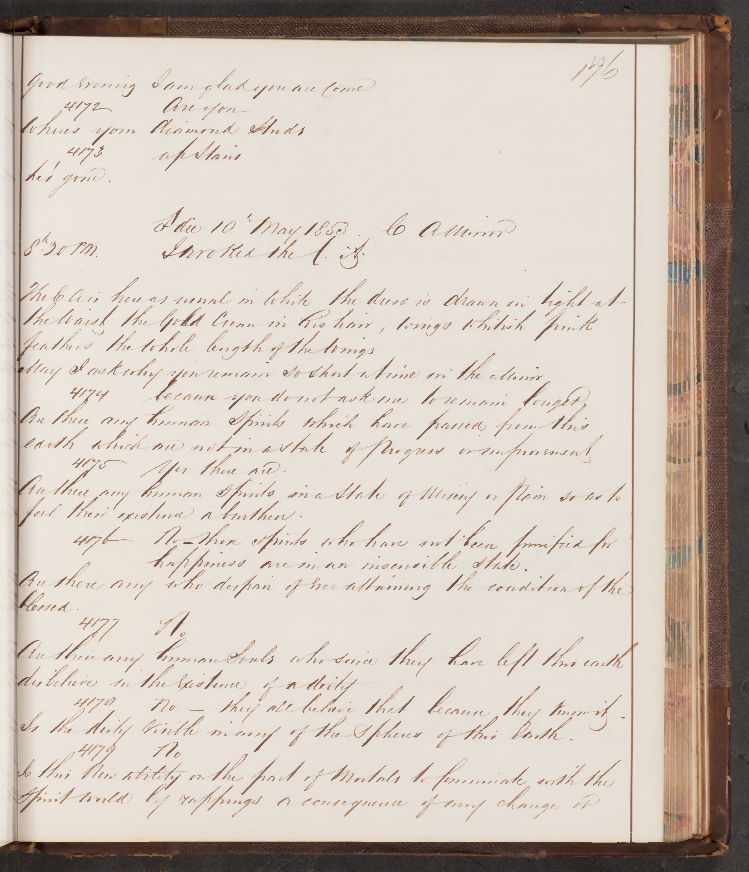 176
Good Evening I am glad you are come
4172 Are you
Wheres your diamond Studs
4173 up Stairs
good.
10' May 1853. C A Mirror
8h 30 PM. Invoked the C. A.
The C. A is here as usual in White the dress is drawn in tight at
the Waist, the Gold Crown in his hair, wings whitish pink
feathers the whole length of the Wings
May I ask why you remain so short a time in the Mirror
4174 because you do not ask me to remain longer,
Are there any human Spirits which have passed from this
earth which are not in a state of Progress or improvement,
4175 Yes there are.
Are there any human Spirits in a State of Misery or Pain so as to
feel their existence a burthen.
4176 No - those spirits who have not been purified for
happiness are in an insensible state.
Are there any who despair of ever attaining the condition of the
blessed.
4177 No
Are there any human Souls who since they have left this earth
disbelieve in the Existence of a deity
4178 No. - they all believe that because they know it.
Is the deity Visible in any of the Spheres of this Earth.
4179 No
Is this New ability on the part of Mortals to Communicate with the
Spirit World by rappings a consequence of any change in